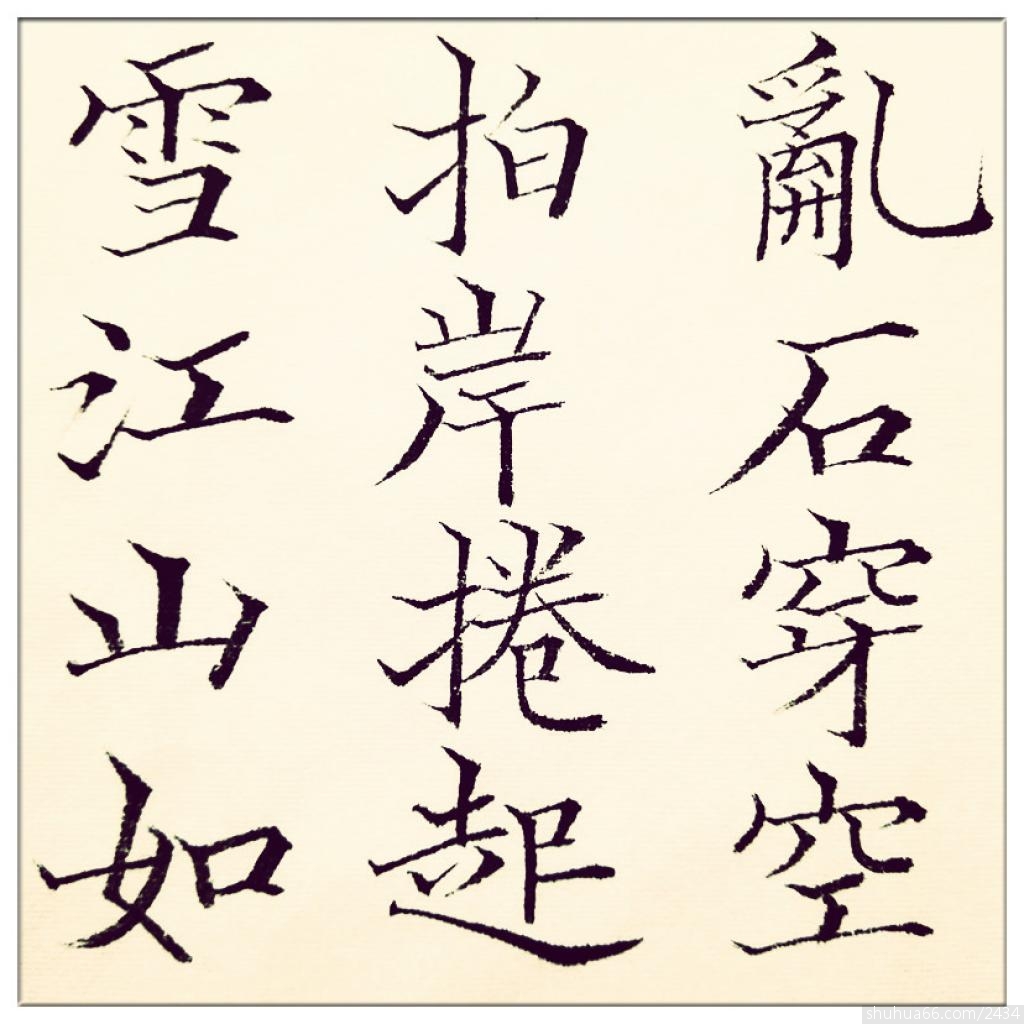 亂石穿空
拍岸捲起
雪江山如
shuhua66.com/2434